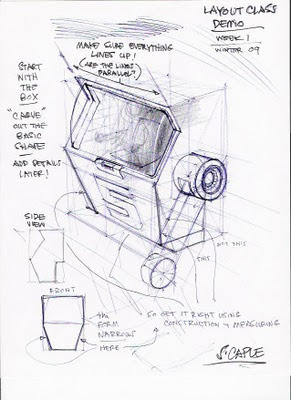 LAYOUT CLASS
DEMO
WEEK 1
WINTER 09
MAKE SURE EVERYTHING
LINES UP!
(ARE THE LINES
PARALLEL?)
START
WITH
THE
BOX
"CARVE"
OUT THE
BASIC
SHAPE
ADD DETAILS
LATER!
SIDE
VIEW
NOT THIS
THIS
FRONT
THE
FORM
NARROWS
HERE
SO GET IT RIGHT USING
CONSTRUCTION & MEASURING
S. CAPLE